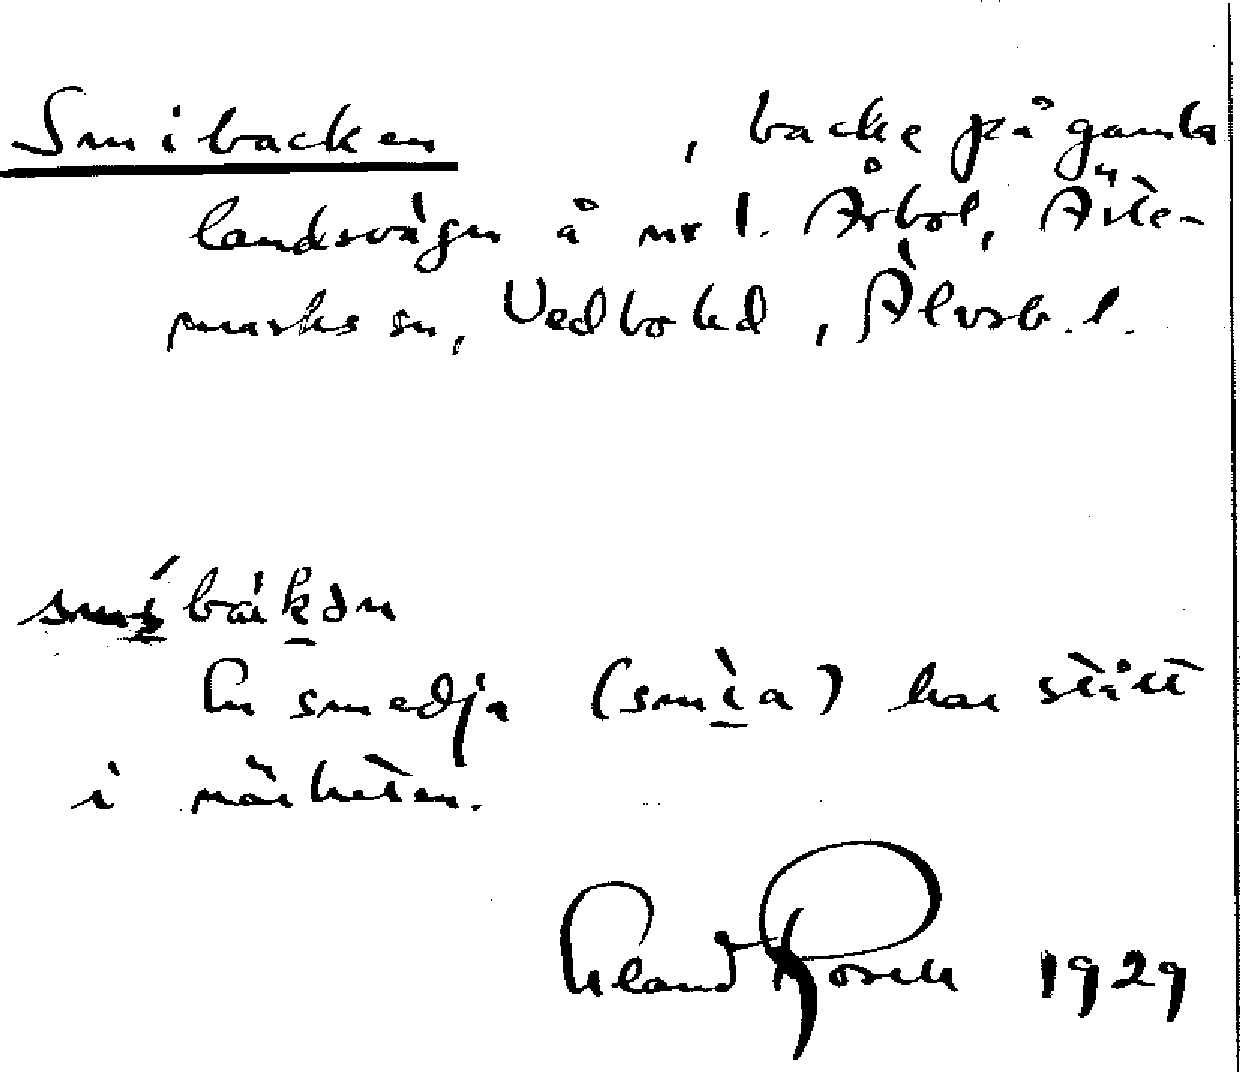 Smibacken , backe på gamla
landsvägen å nr 1. Årbol, Ärte-
marks sn, Vedbo hd, Älvsb. l.
smi̱báḵən
En smedja (smi̱a) har stått
i närheten.
Erland Rosell 1929